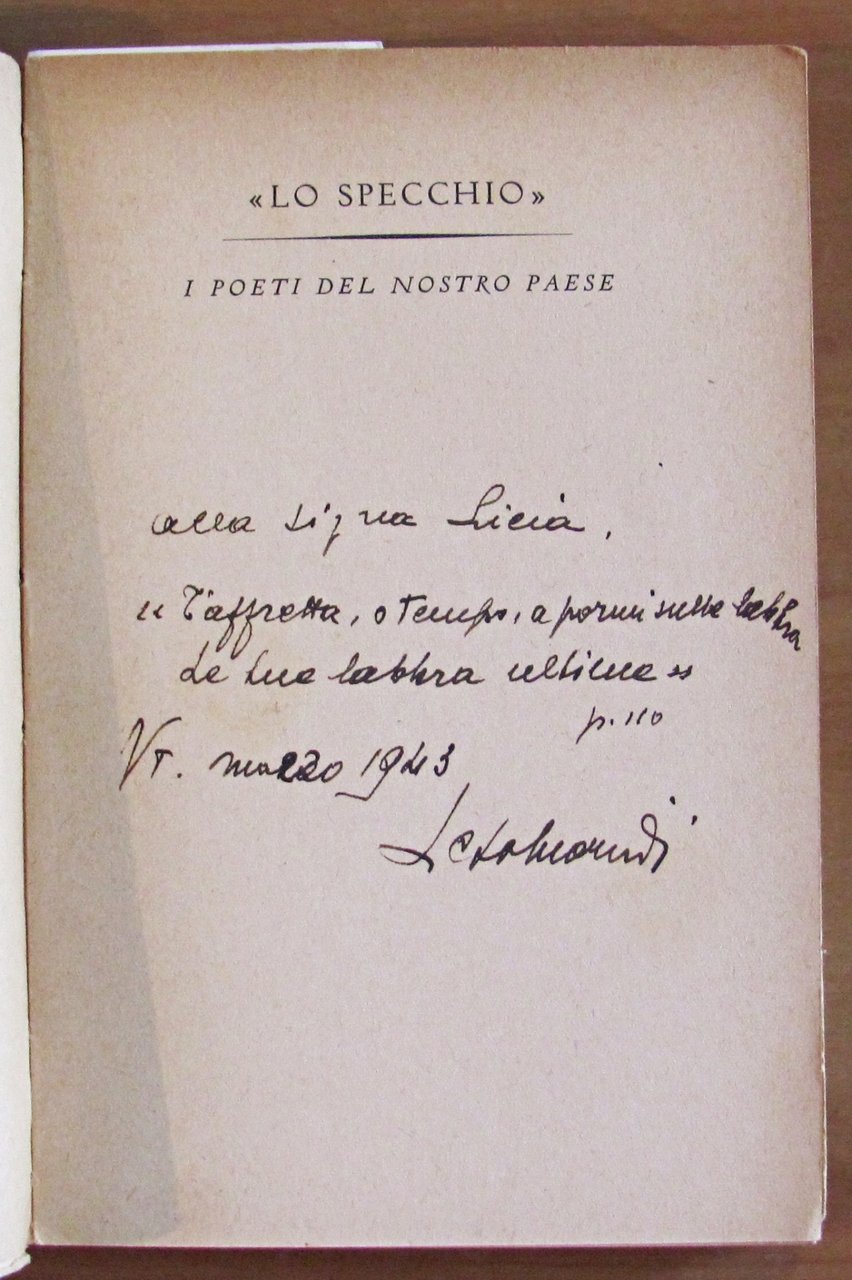 «LO SPECCHIO»
I POETI DEL NOSTRO PAESE
alla Sig.na Licia,
"T'affretta, o tempo, a pormi sulle labbra
Le tue labbra ultime"
p. 110
VT. marzo 1943